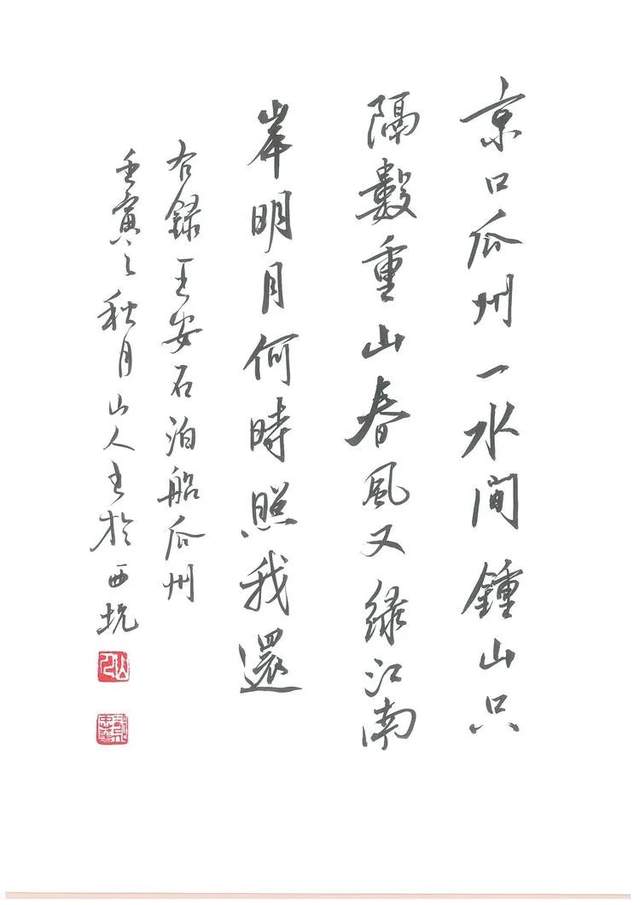 京口瓜州一水间鍾山只
隔數重山春風又绿江南
岸明月何時照我還
右録王安石泊船瓜州
壬寅之秋月山人书於西坑